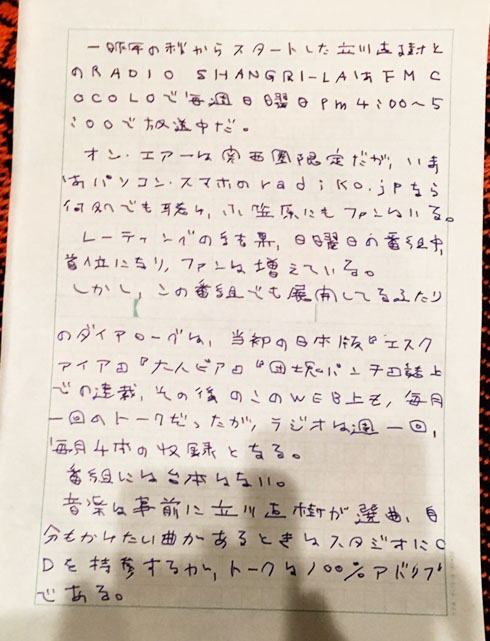 一昨年の秋からスタートした立川直樹と
のRADIO SHANGRI-LAはFM C
OCOLOで毎週日曜日Pm4:00〜5
:00で放送中だ。
オン・エアーは関西圏限定だが、いま
はパソコン・スマホのradiko.jpなら
何処でも聴け、小笠原にもファンはいる。
レーティングの結果、日曜日の番組中、
首位になり、ファンは増えている。
しかし、この番組でも展開してるふたり
のダイアローグは、当初の日本版『エスク
ァイア』『大人ピア』『団塊パンチ』誌上
での連載、その後のこのWEB上も、毎月
一回のトークだったが、ラジオは週一回、
毎月4本の収録となる。
番組には台本はない。
音楽は事前に立川直樹が選曲、自
分もかけたい曲があるときはスタジオにC
Dを持参するが、トークは100%アドリブ
である。